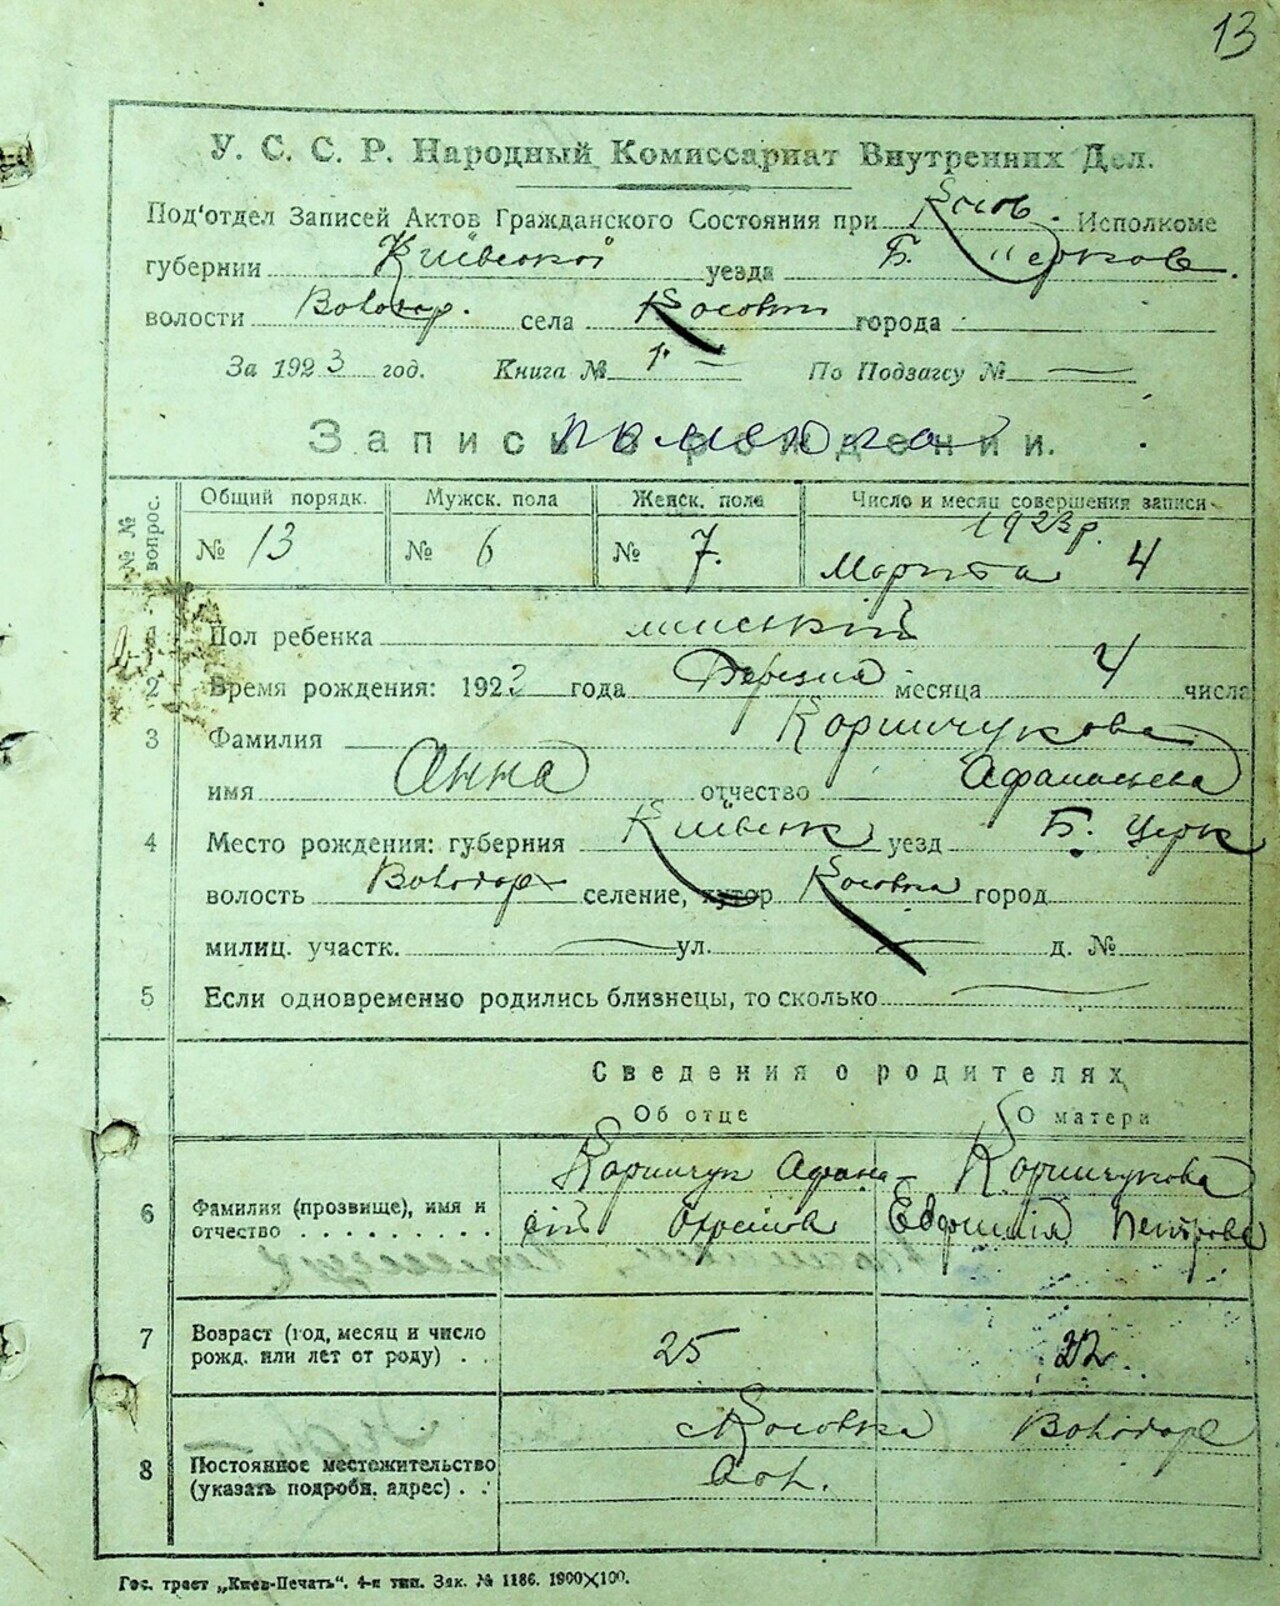 13
У. С. С. Р. Народный Комиссариат Внутренних Дел.
Под'отдел Записей Актов Гражданского Состояния при Косов. Исполкоме
губернии Київської уезда Б. Церков.
волости Володар. села Косовки города
За 1923 год. Книга № 1. По Подзагсу №
Запись о рождении.
№№ вопрос. Общий порядк. Мужск. пола Женск. пола Число и месяц совершения записи
№ 13 № 6 № 7. 1923 р. Марта 4
1 Пол ребенка
2 Время рождения: 1923 года Березня месяца 4 числа
3 Фамилия Коршчукова
имя Анна отчество Афанасьева
4 Место рождения: губерния Київськ уезд Б. Церк
волость Володар селение, хутор Косовка город
милиц. участк. ул. д. №
5 Если одновременно родились близнецы, то сколько
Сведения о родителях
Об отце О матери
Коршчук Афана- Коршчукова
6 Фамилия (прозвище), имя и отчество сій Євфимія Петрова
7 Возраст (год, месяц и число рожд. или лет от роду) 25 22.
с Косовка Володар
8 Постоянное местожительство (указать подробн. адрес) вол.
Гос. трест „Киев-Печать“. 4-я тип. Зак. № 1186. 1900×100.